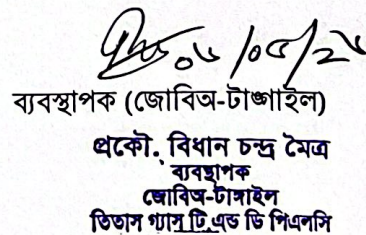 ০৮/০৫/২৫
ব্যবস্থাপক (জোবিঅ-টাঙ্গাইল)
প্রকৌ. বিধান চন্দ্র মৈত্র
ব্যবস্থাপক
জোবিঅ-টাঙ্গাইল
তিতাস গ্যাস টি এন্ড ডি পিএলসি